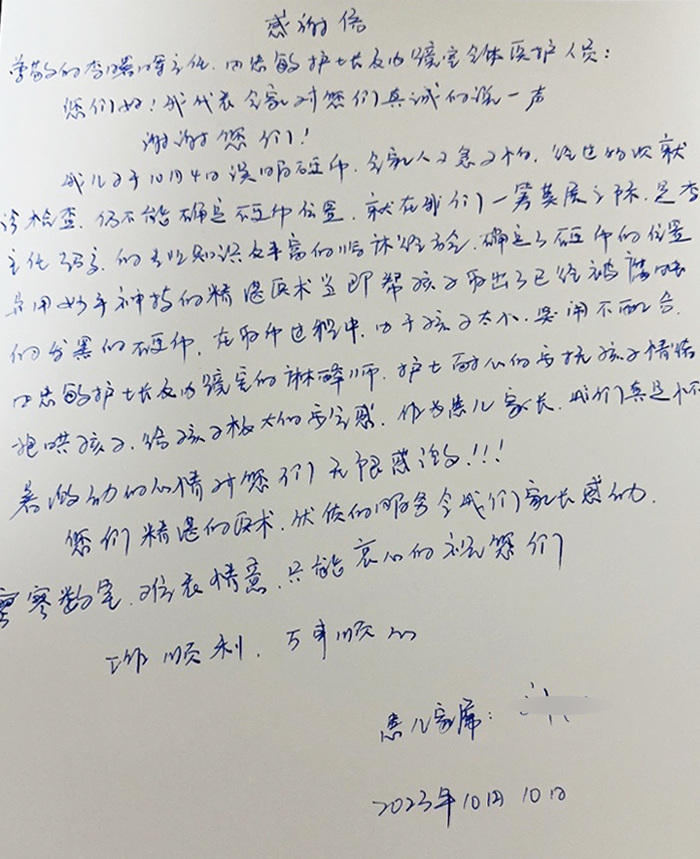 感谢信
尊敬的李曙晖主任、田忠敏护士长及内镜室全体医护人员：
您们好！我代表全家对您们真诚的说一声
谢谢您们！
我儿子于10月4日误服硬币，全家人又急又怕，经过多次就
诊检查，仍不能确定硬币位置，就在我们一筹莫展之际，是李
主任 的专业知识及丰富的临床经验，确定了硬币的位置
并用妙手神技的精湛医术立即帮孩子取出了已经被腐蚀
的发黑的硬币，在取币过程中，由于孩子太小，哭闹不配合，
田忠敏护士长及内镜室的麻醉师、护士耐心的安抚孩子情绪
抱哄孩子，给孩子极大的安全感，作为患儿家长，我们真是怀
着激动的心情对您们无限感激！！！
您们精湛的医术，优质的服务令我们家长感动，
寥寥数笔，难表情意，只能衷心的祝您们
工作顺利，万事顺心
患儿家属：
2023年10月10日